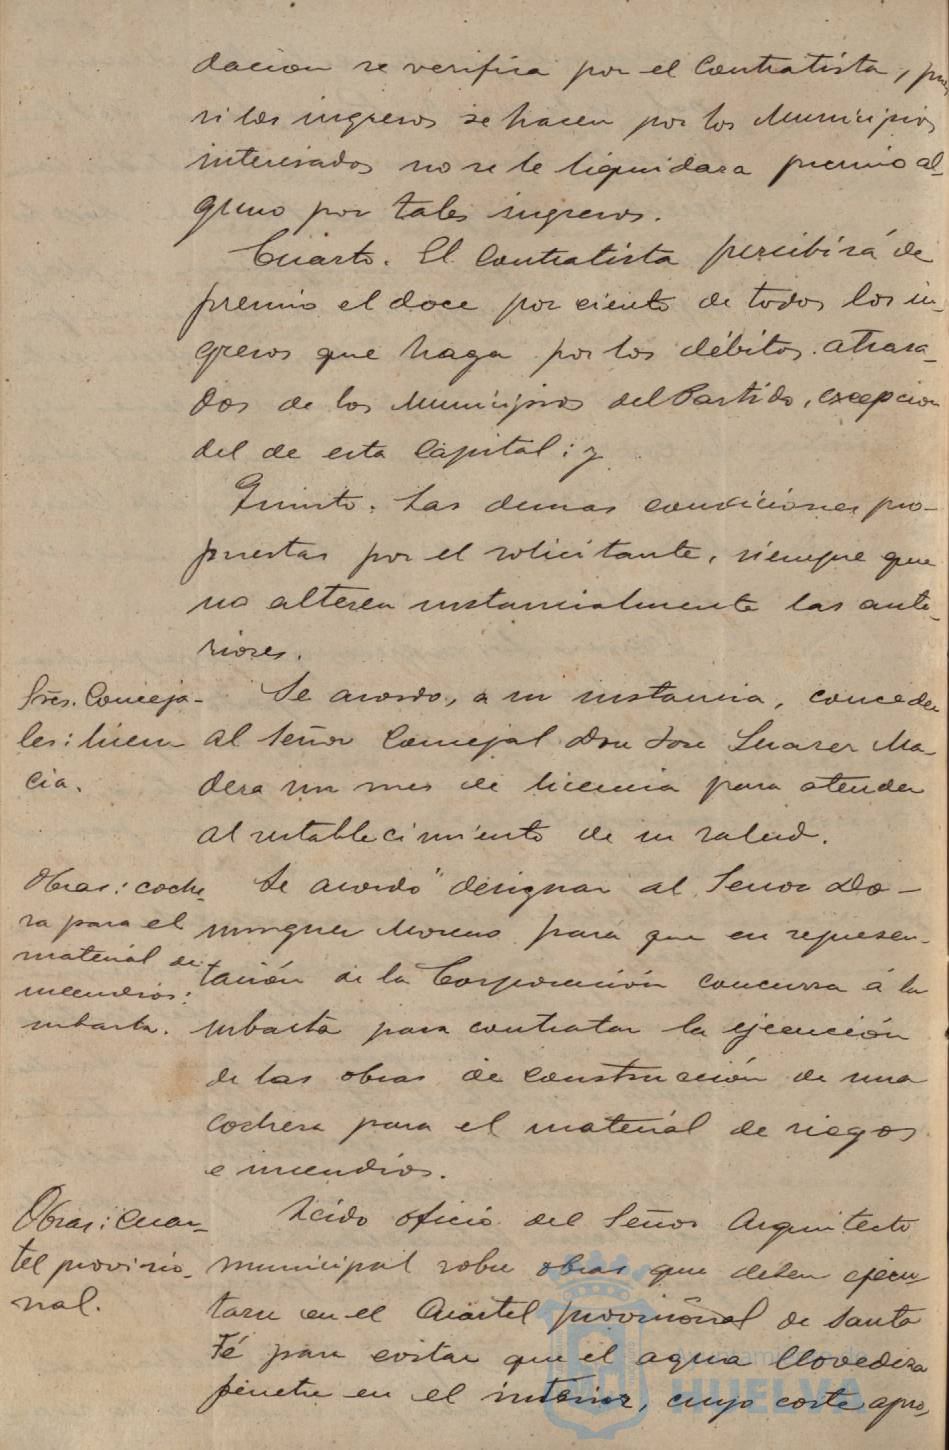 dacion se verifica por el Contratista, pues
si los ingresos se hacen por los Municipios
interesados no se le liquidara premio al-
guno por tales ingresos.
Cuarto. El Contratista percibirá de
premio el doce por ciento de todos los in-
gresos que haga por los débitos atrasa-
dos de los Municipios del Partido, excepcion
del de esta Capital; y
Quinto. Las demas condiciones pro-
puestas por el solicitante, siempre que
no alteren sustancialmente las ante-
riores.
Sres. Conceja-
les: licen
cia.
Se acordo, a su instancia, conceder
al Señor Concejal Don Jose Suarez Ma
dera un mes de licencia para atender
al restablecimiento de su salud.
Obras: coche-
ra para el
material de
incendios:
subasta.
Se acordó designar al Señor Do-
minguez Moreno para que en represen-
tación de la Corporación concurra á la
subasta para contratar la ejecución
de las obras de construcción de una
cochera para el material de riegos
e incendios.
Obras: Cuar-
tel provisio-
nal.
Leido oficio del Señor Arquitecto
municipal sobre obras que deben ejecu
tarse en el Cuartel provisional de Santa
Fé para evitar que el agua llovediza
penetre en el interior, cuyo coste apro-
Ayuntamiento de
HUELVA